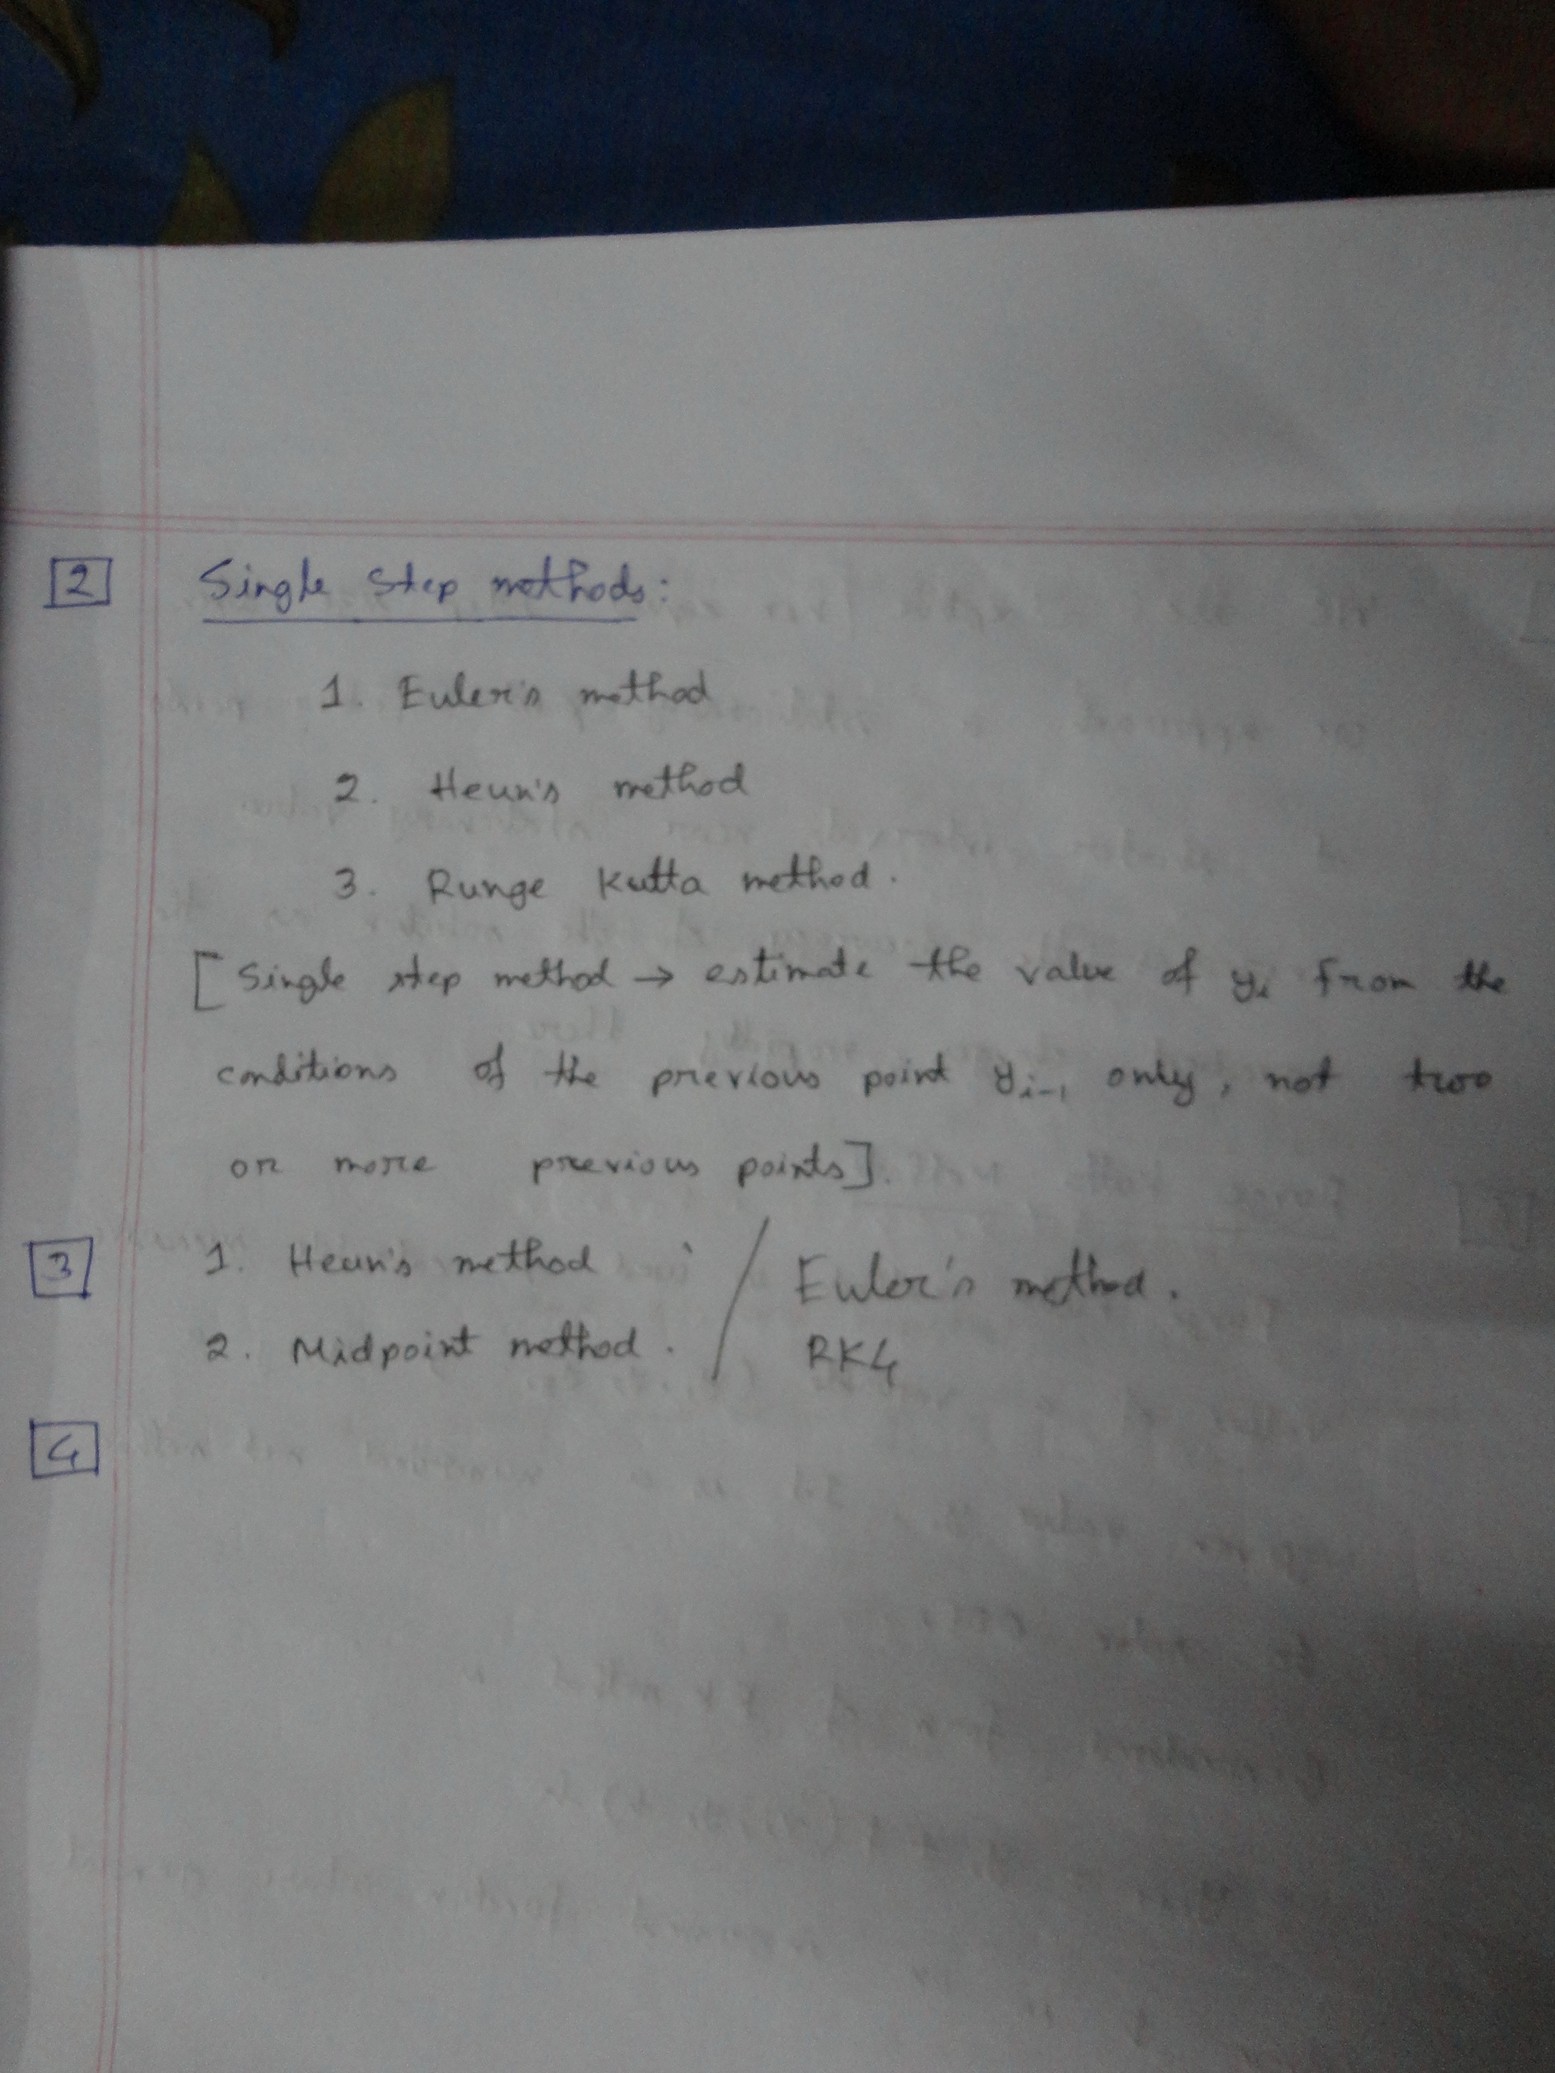 2 Single step methods:
1. Euler's method
2. Heun's method
3. Runge Kutta method.
[Single step method → estimate the value of yᵢ from the
conditions of the previous point yᵢ₋₁ only, not two
or more previous points].
3 1. Heun's method / Euler's method.
2. Midpoint method. / RK4
4